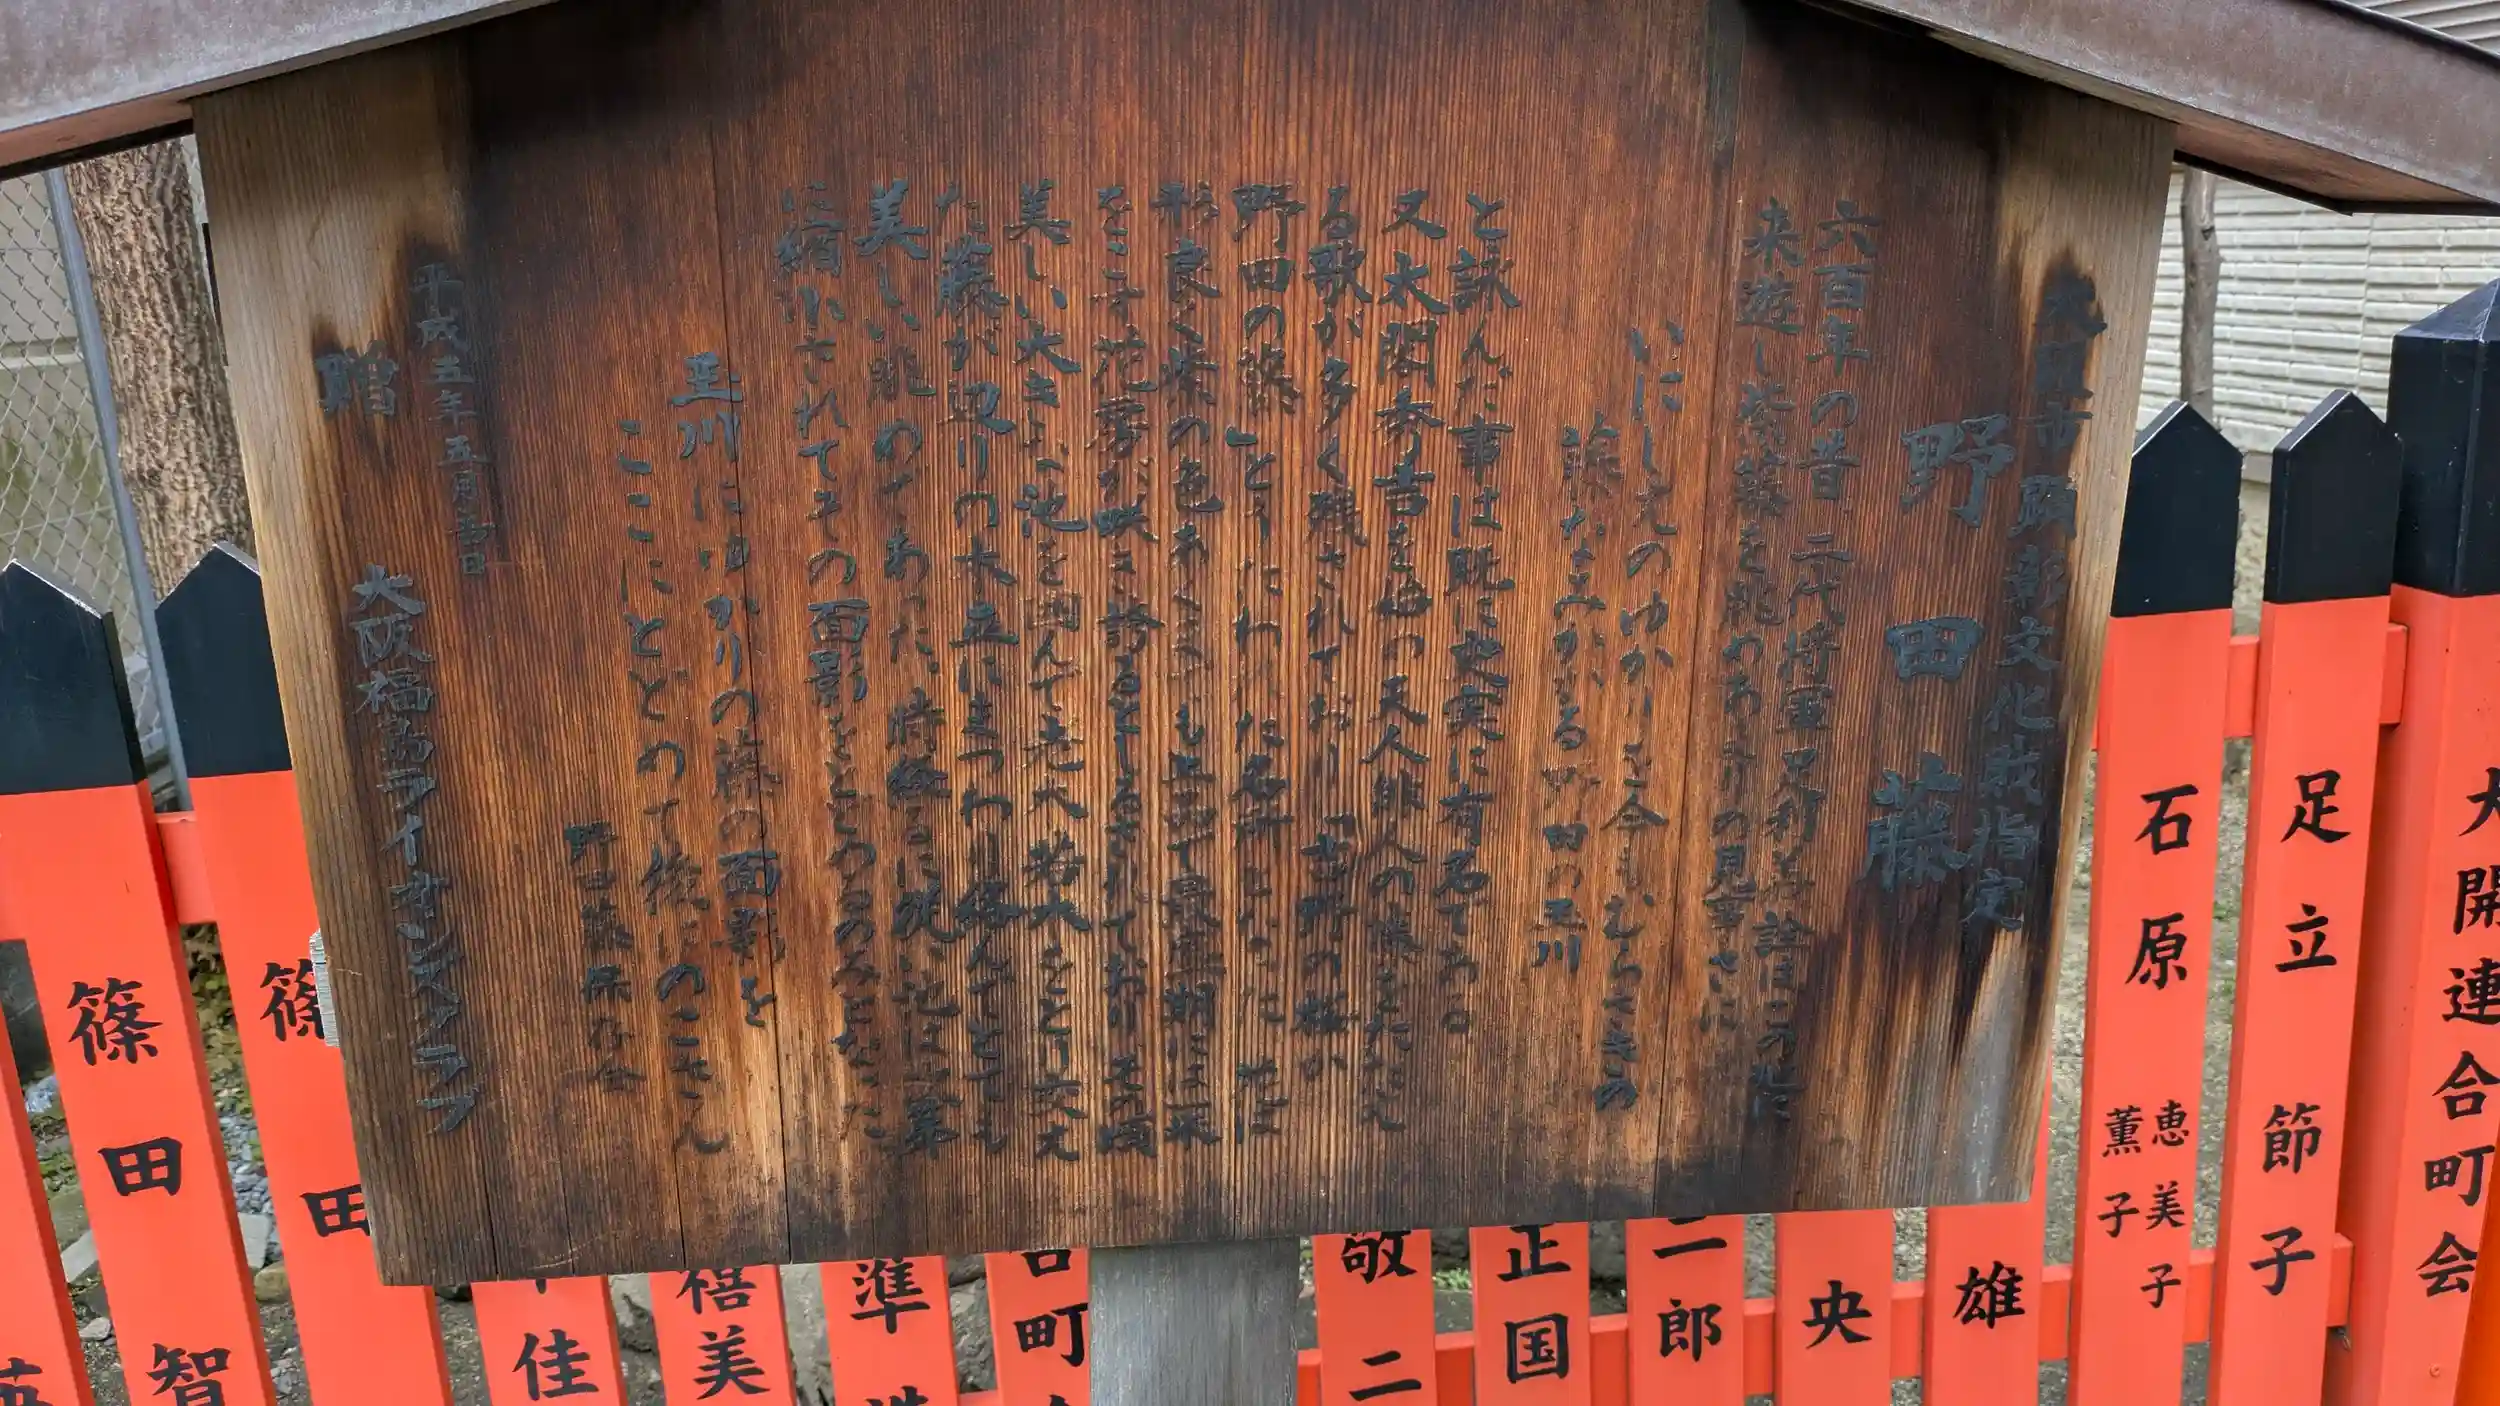 大阪市顕彰文化財指定
野田藤
六百年の昔 二代将軍足利義詮はこの地に
来遊し紫藤を眺めあまりの見事さに
いにしえのゆかりを今もむらさきの
藤なみかゝる野田の玉川
と詠んだ事は既に史実に有名である
又太閤秀吉を始め天人俳人の藤をたたえ
る歌が多く残されており「吉野の桜か
野田の藤」とうたわれた名所だった 花は
形良く藤の色あくまでも上品で最盛期には
をこす花房が咲き誇るとしるされており その頃
美しい大きな池を囲んで老木 若木をとり交え
た藤が辺りの木立にまつわり絡んでとても
美しい眺めであった 時経るに従い池は
に縮小されてその面影をとどめるのみとなった
玉川にゆかりの藤の面影を
ここにとどめて後にのこさん
野田藤保存会
平成五年五月 日
贈 大阪福島ライオンズクラブ
大開連合町会
足立節子
石原
恵美子
薫子
雄
央
二郎
正国
敬二
町
準
禧美
佳
篠田
篠田智